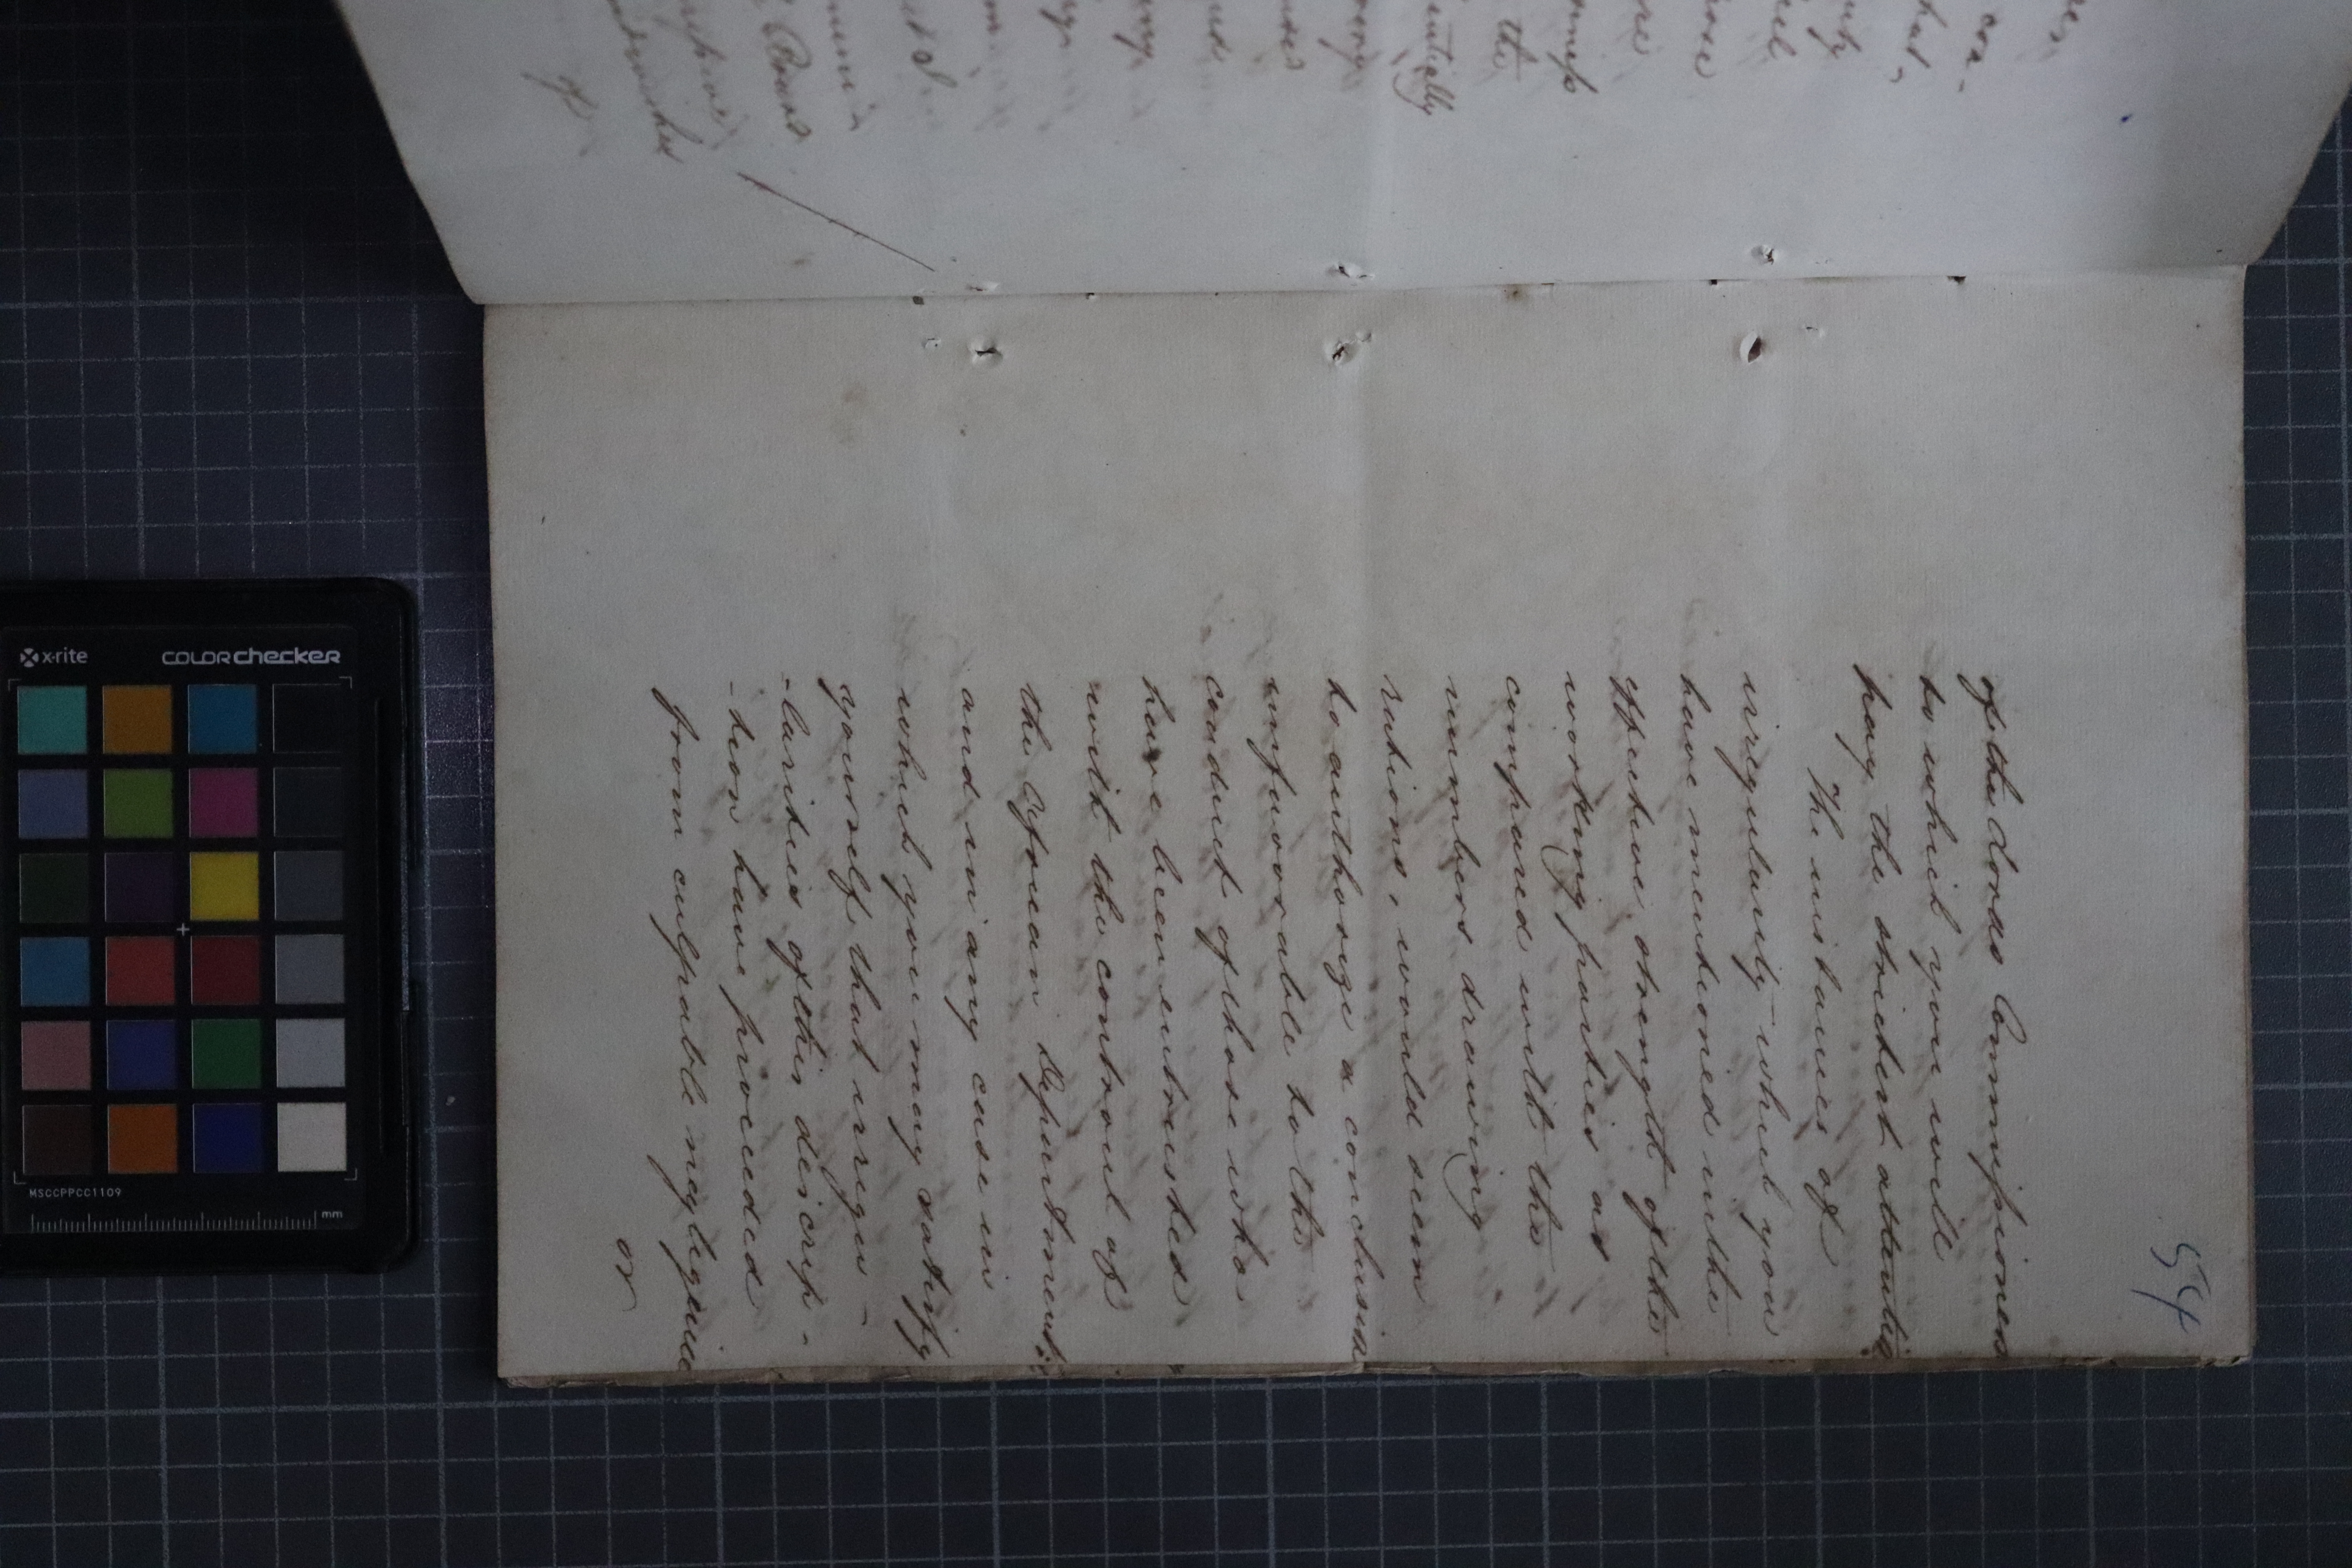 54
of the Lords Commissioners
to which you will
pay the strictest attention
The instances of
irregularity which you
have mentioned in the
effective strength of the
working parties as
compared with the
numbers drawing
rations, would seem
to authorize a conclusion
unfavourable to the
conduct of those who
have been entrusted
with the controul of
the African Department;
and in any case in
which you may satisfy
yourself that irregu-
-larities of this descrip-
-tion have proceeded
from culpable negligence
or
con-
the
entially
of
x-rite
colorchecker
MSCCPPCC1109
mm